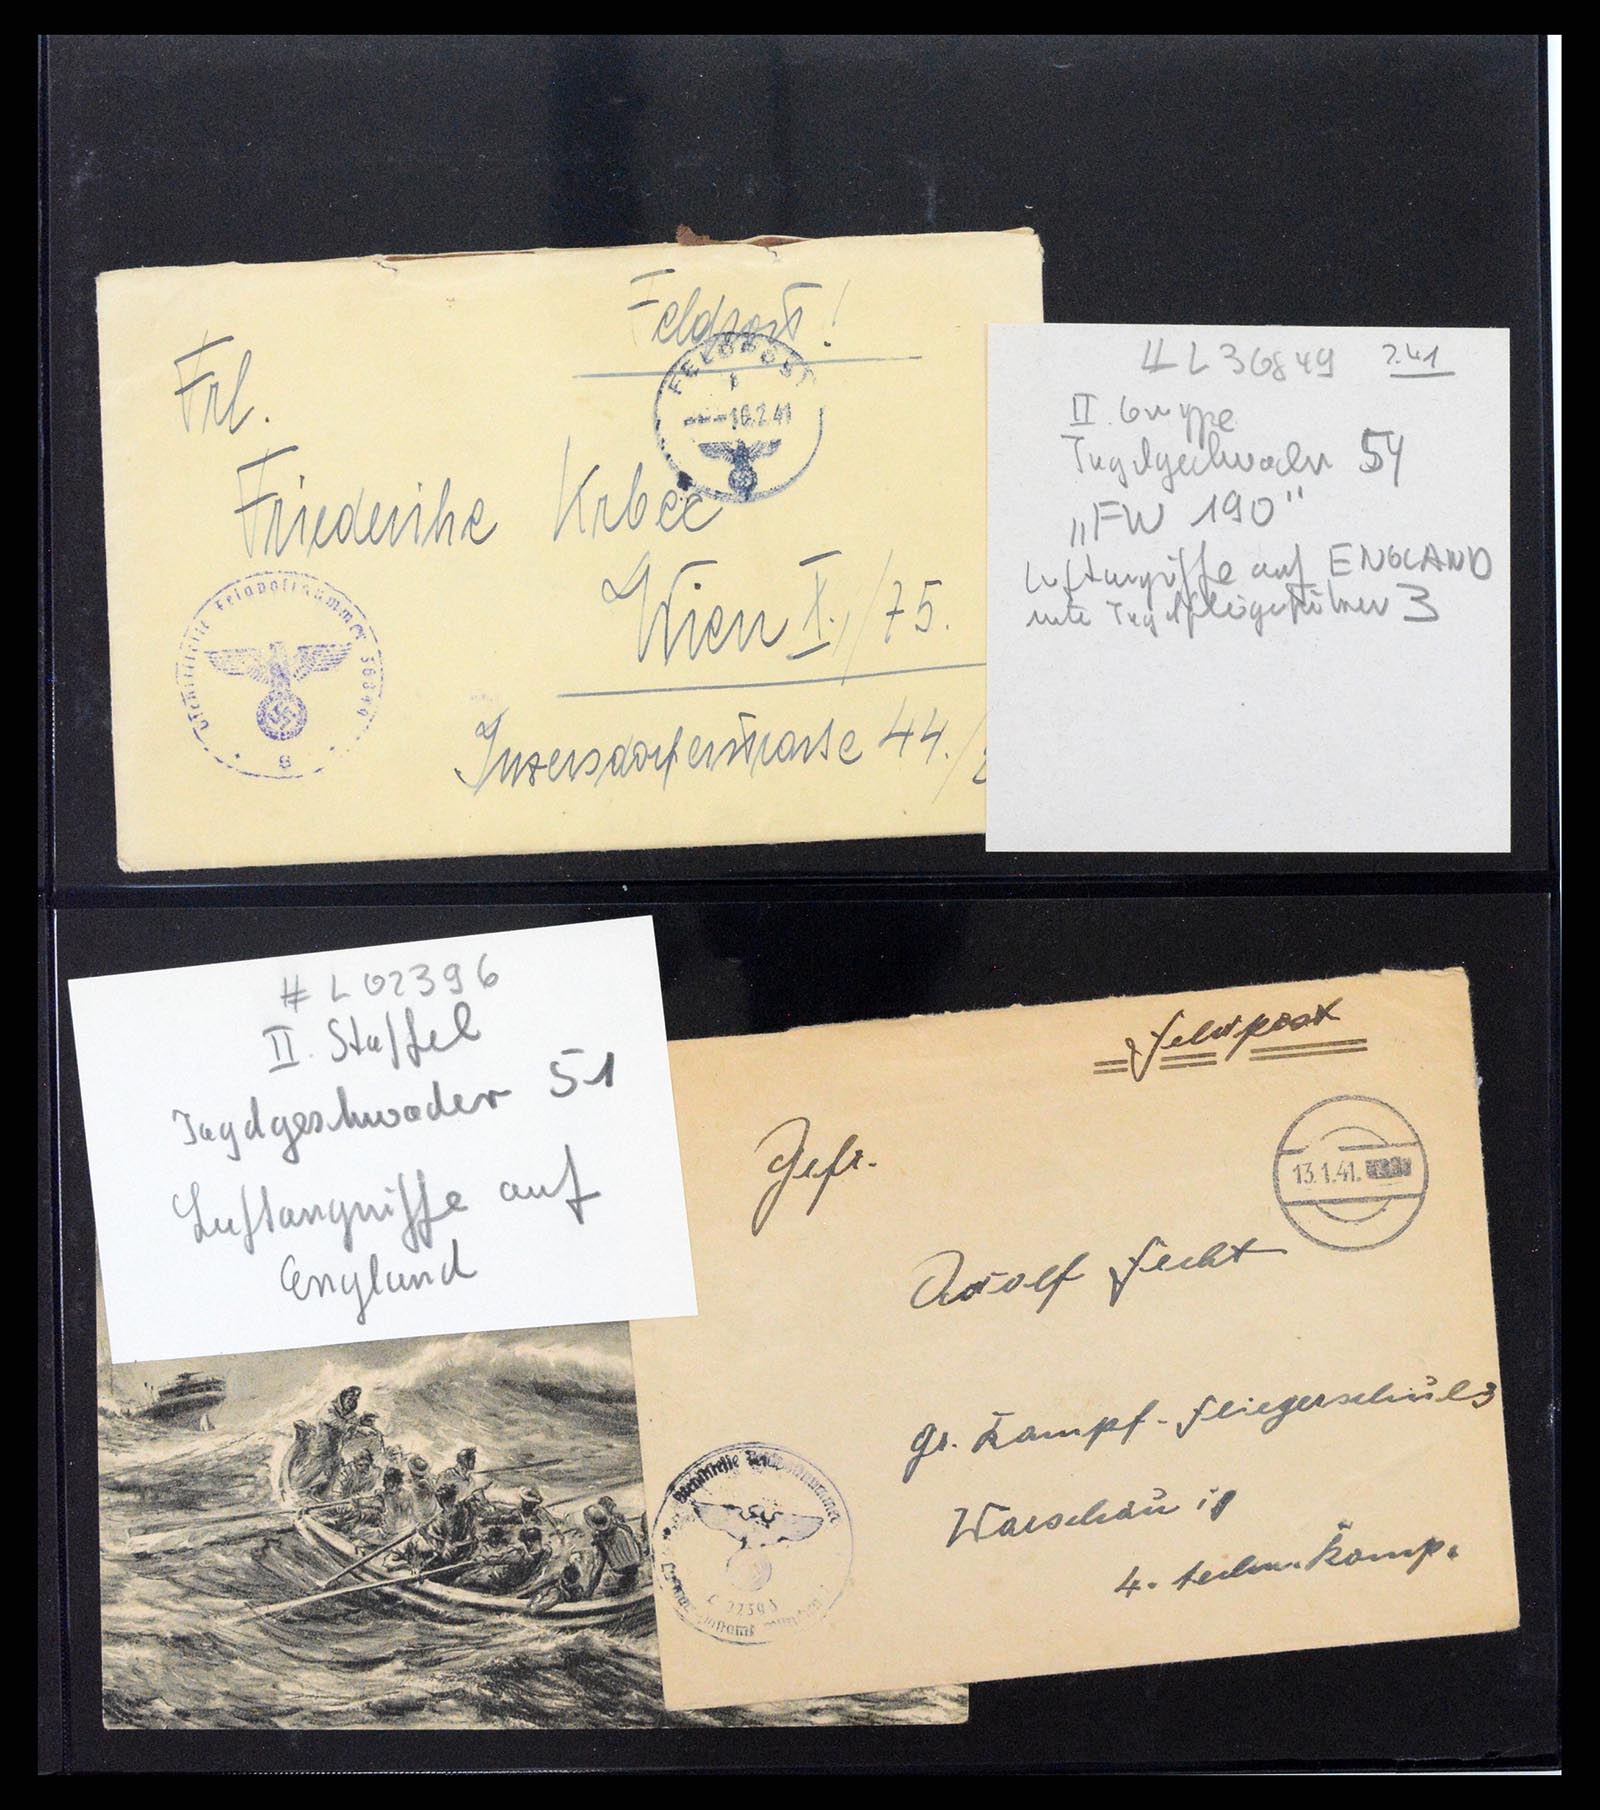 Feldpost!
Frl.
FELDPOST
16.2.41
Friederike Krbec
Wien X./75.
Inzersdorferstrasse 44./
Feldpostnummer 36849
# L 36849 2.41
II. Gruppe
Jagdgeschwader 54
„FW 190"
Luftangriffe auf ENGLAND
unter Jagdfliegerführer 3
# L 02396
II. Staffel
Jagdgeschwader 51
Luftangriffe auf
England
Feldpost
13.1.41.
Gefr.
Adolf Fecht
gr. Kampf-Fliegerschule 3
Warschau
4. techn. Komp.
Dienststelle Feldpostnummer